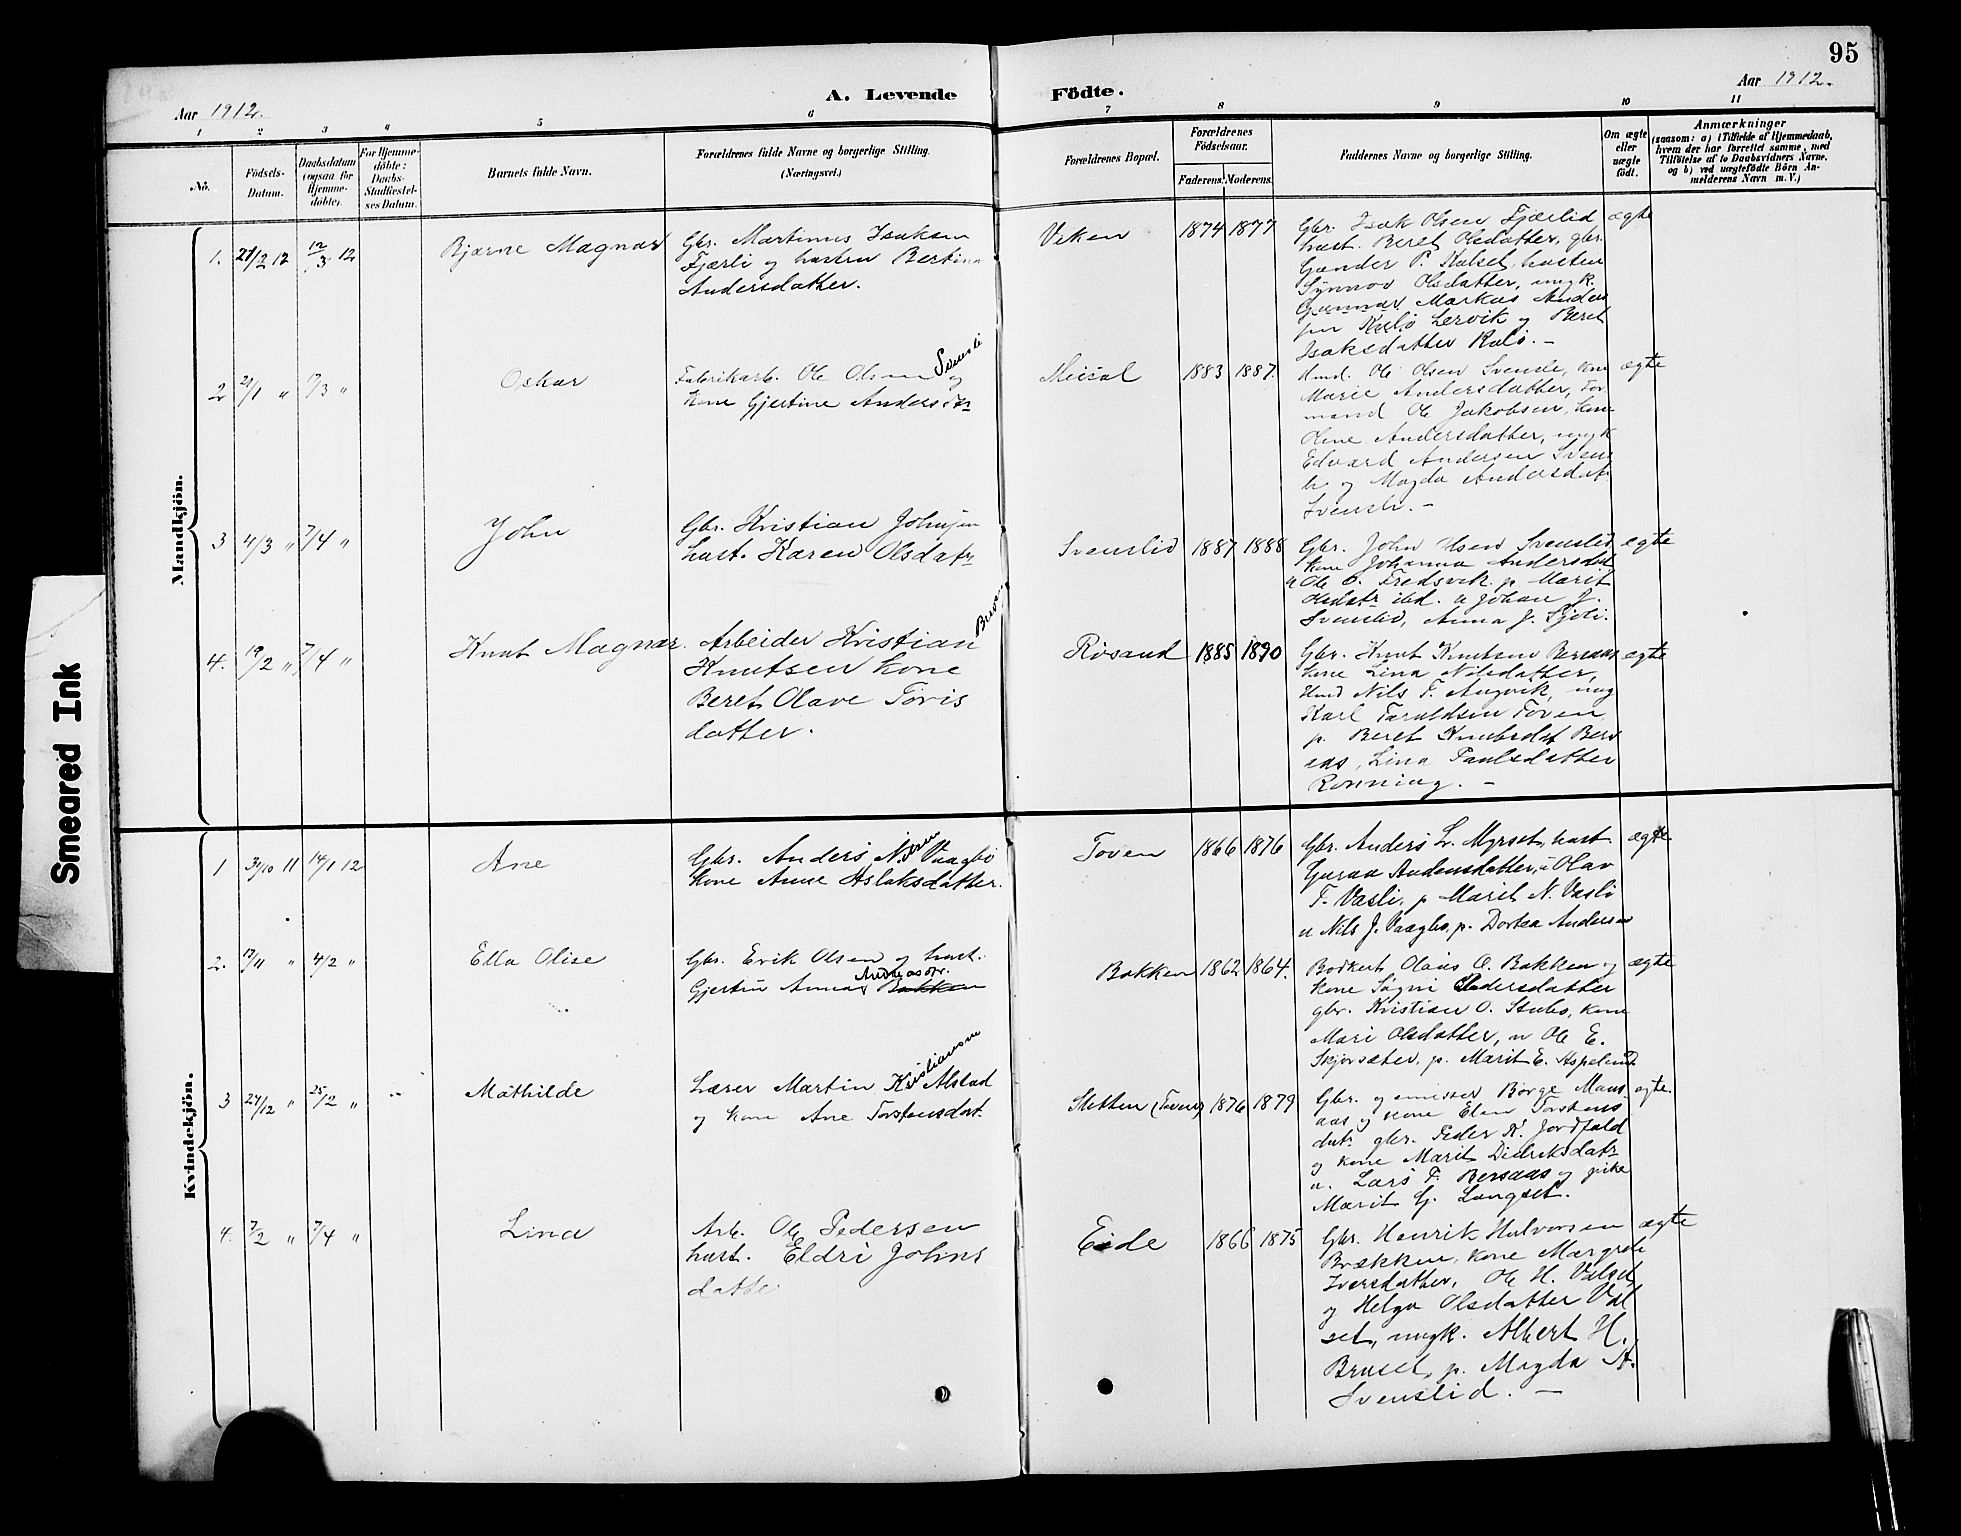 95
Aar 1912.
A. Levende Födte.
Aar 1912.
1 2 3 4 5 6 7 8 9 10 11
No.
Födsels-Datum.
Daabsdatum (ogsaa for Hjemme-döbte).
For Hjemme-döbte: Daabs-Stadfæstel-ses Datum.
Barnets fulde Navn.
Forældrenes fulde Navne og borgerlige Stilling.
(Næringsvei.)
Forældrenes Bopæl.
Forældrenes Födselsaar.
Faderens. Moderens.
Faddernes Navne og borgerlige Stilling.
Om ægte eller uægte födt.
Anmærkninger
(saasom: a) i Tilfælde af Hjemmedaab,
hvem der har forrettet samme, med
Tilföielse af to Daabsvidners Navne,
og b) ved uægtefödte Börn An-
melderens Navn m. V.)
Mandkjön.
1. 27/2 12 12/3 12 Bjarne Magnar
Gbr. Martinus Isaksen
Fjærli og hustru Bertine
Andersdatter.
Viken 1874 1877
Gbr. Isak Olsen Fjærlid
hust. Beret Olsdatter, gbr.
Gunder P. Kalset, hustru
Synnøv Olsdatter, ungk.
Gunnar Markus Anders
sen Lervik og Beret
Isaksdatter
ægte
2 21/1 " 17/3 " Oskar
Fabrikarb. Ole Olsen Svensli og
kone Gjertine Andersdtr
Meisal 1883 1887.
Husm. Ole Olsen Svensli, kone
Marie Andersdatter, For
mand Ole Jakobsen, kone
Oline Andersdatter, ungk
Edvard Andersen Svens
li og Magda Andersdatr
Svensli. -
ægte
3 4/3 " 7/4 " John
Gbr. Kristian Johnsen
hust. Karen Olsdatr
Svenslid 1887 1888
Gbr. John Olsen Svenslid
kone Johanna Andersdat
u Ole O. Fredsvik. p. Marit
Olsdatr ibd. u Johan J.
Svenslid, Anna J.
ægte
4. 19/2 " 7/4 " Knut Magnar.
Arbeider Kristian
Knutsen kone
Beret Olave Toris
datter.
Røsand 1885 1890
Gbr. Knut Knutsen Bersaas
kone Lina Nilsdatter,
Husm Nils T. Angvik, ung
Karl Taraldsen Toven
p. Beret Knutsdat Bers
aas, Lina Paulsdatter
Rønning. -
ægte
Kvindekjön.
1 31/10 11 14/1 12 Ane
Gbr. Anders Nilsen Vaagbø
kone Anne Aslaksdatter.
Toven 1866 1876
Gbr. Anders L. Myrset, hust.
Guraa Andersdatter, u Olav
T. Vasli, p Marit N. Vasli
u Nils J. Vaagbø, p. Dortea Andersen
ægte
2. 17/11 " 4/2 " Ella Olise
Gbr. Erik Olsen og hust.
Gjertine Anna Andreasdtr. Bakken
Bakken 1862 1864.
Bødker Olaus O. Bakken og
kone Segni Pedersdatter
gbr. Kristian O. Stubø, kone
Mari Olsdatter, u Ole E.
Skjørsæter, p. Marit E. Aspelund
ægte
3 27/12 " 25/2 " " Mathilde
Lærer Martin Kristiansen Alstad
og kone Ane Torstensdat.
Sletten (Toven) 1876 1879
Gbr. og emissær Børge Maas
aas og kone Elen Torstens
datr gbr. Peder K. Jordfald
og kone Marit Didriksdatr
u. Lars T. Bersaas og pike
Marit G. Langset.
ægte.
4. 7/2 " 7/4 " Lina
Arb. Ole Pedersen
hust. Eldri Johns
datte
Eide 1866 1875
Gbr. Henrik Halvorsen
Brækken, kone Margrete
Iversdatter, Ole H. Valset
og Helga Olsdatter Val
set, ungk. Albert H.
Bruset, p. Magda A.
Svenslid. -
ægte
Smeared Ink